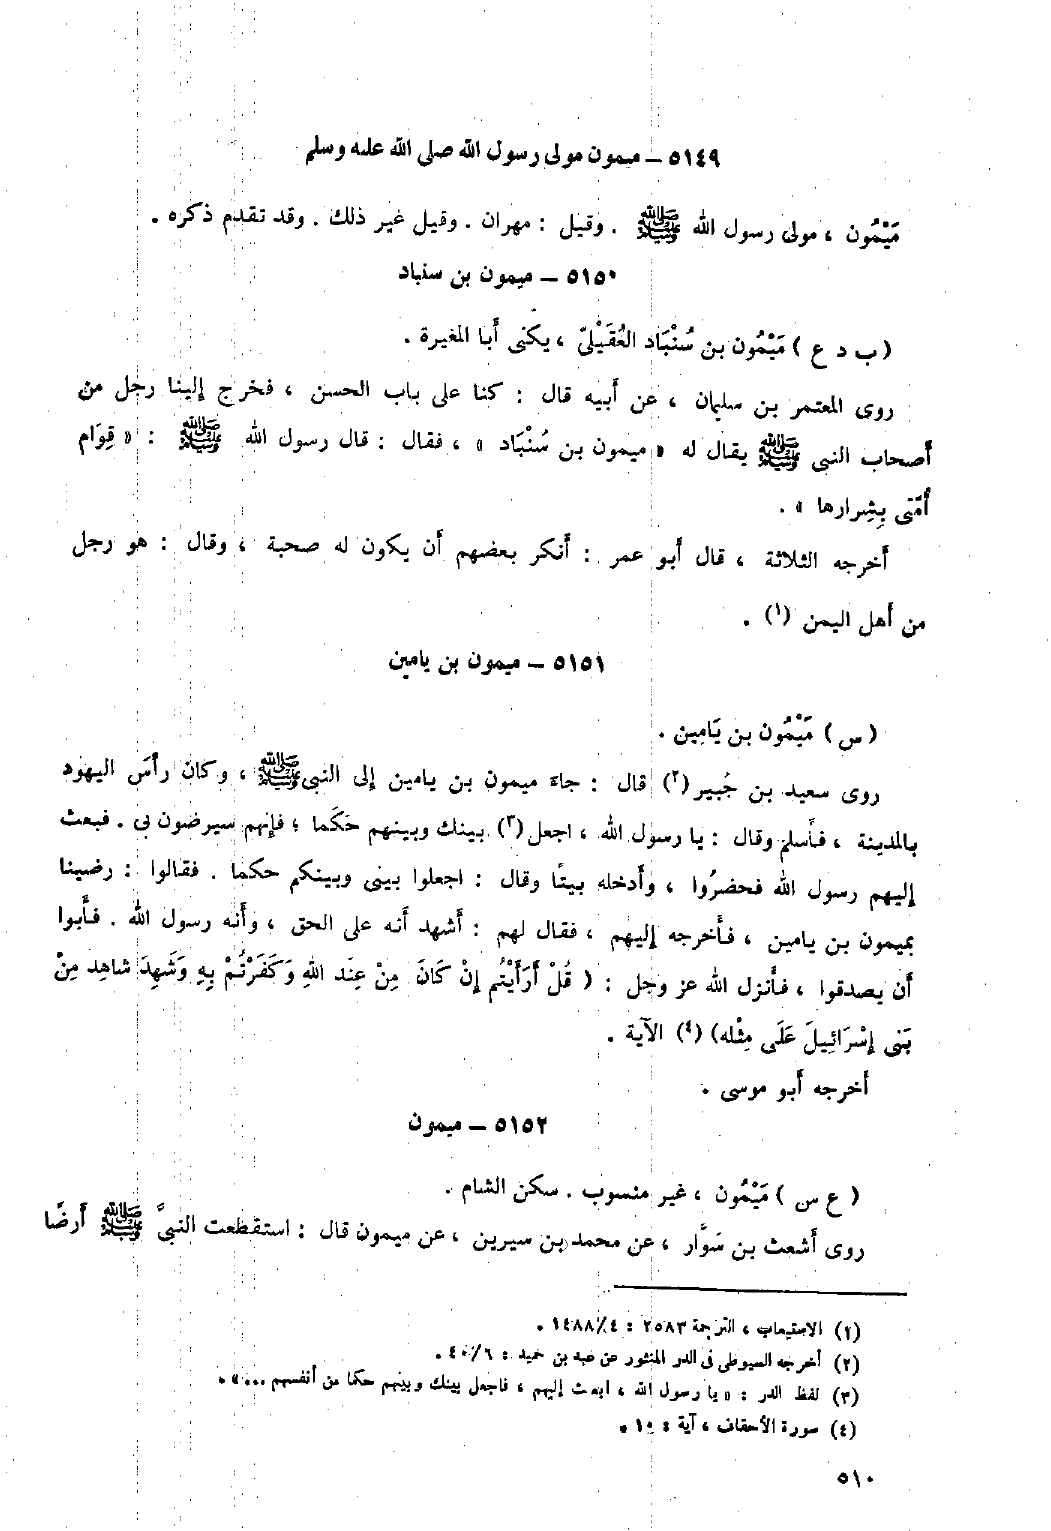 ٥١٤٩ ـ ميمون مولى رسول الله صلى الله عليه وسلم
مَيْمُون ، مولى رسول الله ﷺ . وقيل : مهران . وقيل غير ذلك . وقد تقدم ذكره .
٥١٥٠ ـ ميمون بن سنباد
( ب د ع ) مَيْمُون بن سُنْبَاد العُقَيْلىّ ، يكنى أَبا المغيرة .
روى المعتمر بن سليمان ، عن أَبيه قال : كنا على باب الحسن ، فخرج إِلينا رجل من
أَصحاب النبى ﷺ يقال له « ميمون بن سُنْبَاد » ، فقال : قال رسول الله ﷺ : « قِوَام
أُمَّتى بِشِرارها » .
أَخرجه الثلاثة ، قال أَبو عمر : أَنكر بعضهم أَن يكون له صحبة ، وقال : هو رجل
من أَهل اليمن (١) .
٥١٥١ ـ ميمون بن يامين
( س ) مَيْمُون بن يَامِين .
روى سعيد بن جُبير(٢) قال : جاءَ ميمون بن يامين إِلى النبى ﷺ ، وكان رأْسَ اليهود
بالمدينة ، فأَسلم وقال : يا رسول الله ، اجعل(٣) بينك وبينهم حَكَما ؛ فإِنهم سيرضون بى . فبعث
إِليهم رسول الله فحضرُوا ، وأَدخله بيتًا وقال : اجعلوا بينى وبينكم حكما . فقالوا : رضينا
بميمون بن يامين ، فأَخرجه إِليهم ، فقال لهم : أَشهد أَنه على الحق ، وأَنه رسول الله . فأَبوا
أَن يصدقوا ، فأَنزل الله عز وجل : ( قُلْ أَرَأَيْتُم إِنْ كَانَ مِنْ عِنَد اللهِ وَكَفَرْتُمْ بِهِ وَشَهِدَ شاهِد مِنْ
بَنى إِسْرَائِيلَ عَلَى مِثْله) (٤) الآية .
أَخرجه أَبو موسى .
٥١٥٢ ـ ميمون
( ع س ) مَيْمُون ، غير منسوب . سكن الشام .
روى أَشعث بن سَوَّار ، عن محمد بن سيرين ، عن ميمون قال : استقطعت النبىَّ ﷺ أَرضًا
(١) الاستيعاب ، الترجمة ٢٥٨٣ : ١٤٨٨/٤ .
(٢) أخرجه السيوطى فى الدر المنثور عن عبد بن حميد : ٤٠/٦ .
(٣) لفظ الدر : « يا رسول الله ، ابعث إليهم ، فاجعل بينك وبينهم حكما من أنفسهم ... » .
(٤) سورة الأحقاف ، آية : ١٠ .
٥١٠